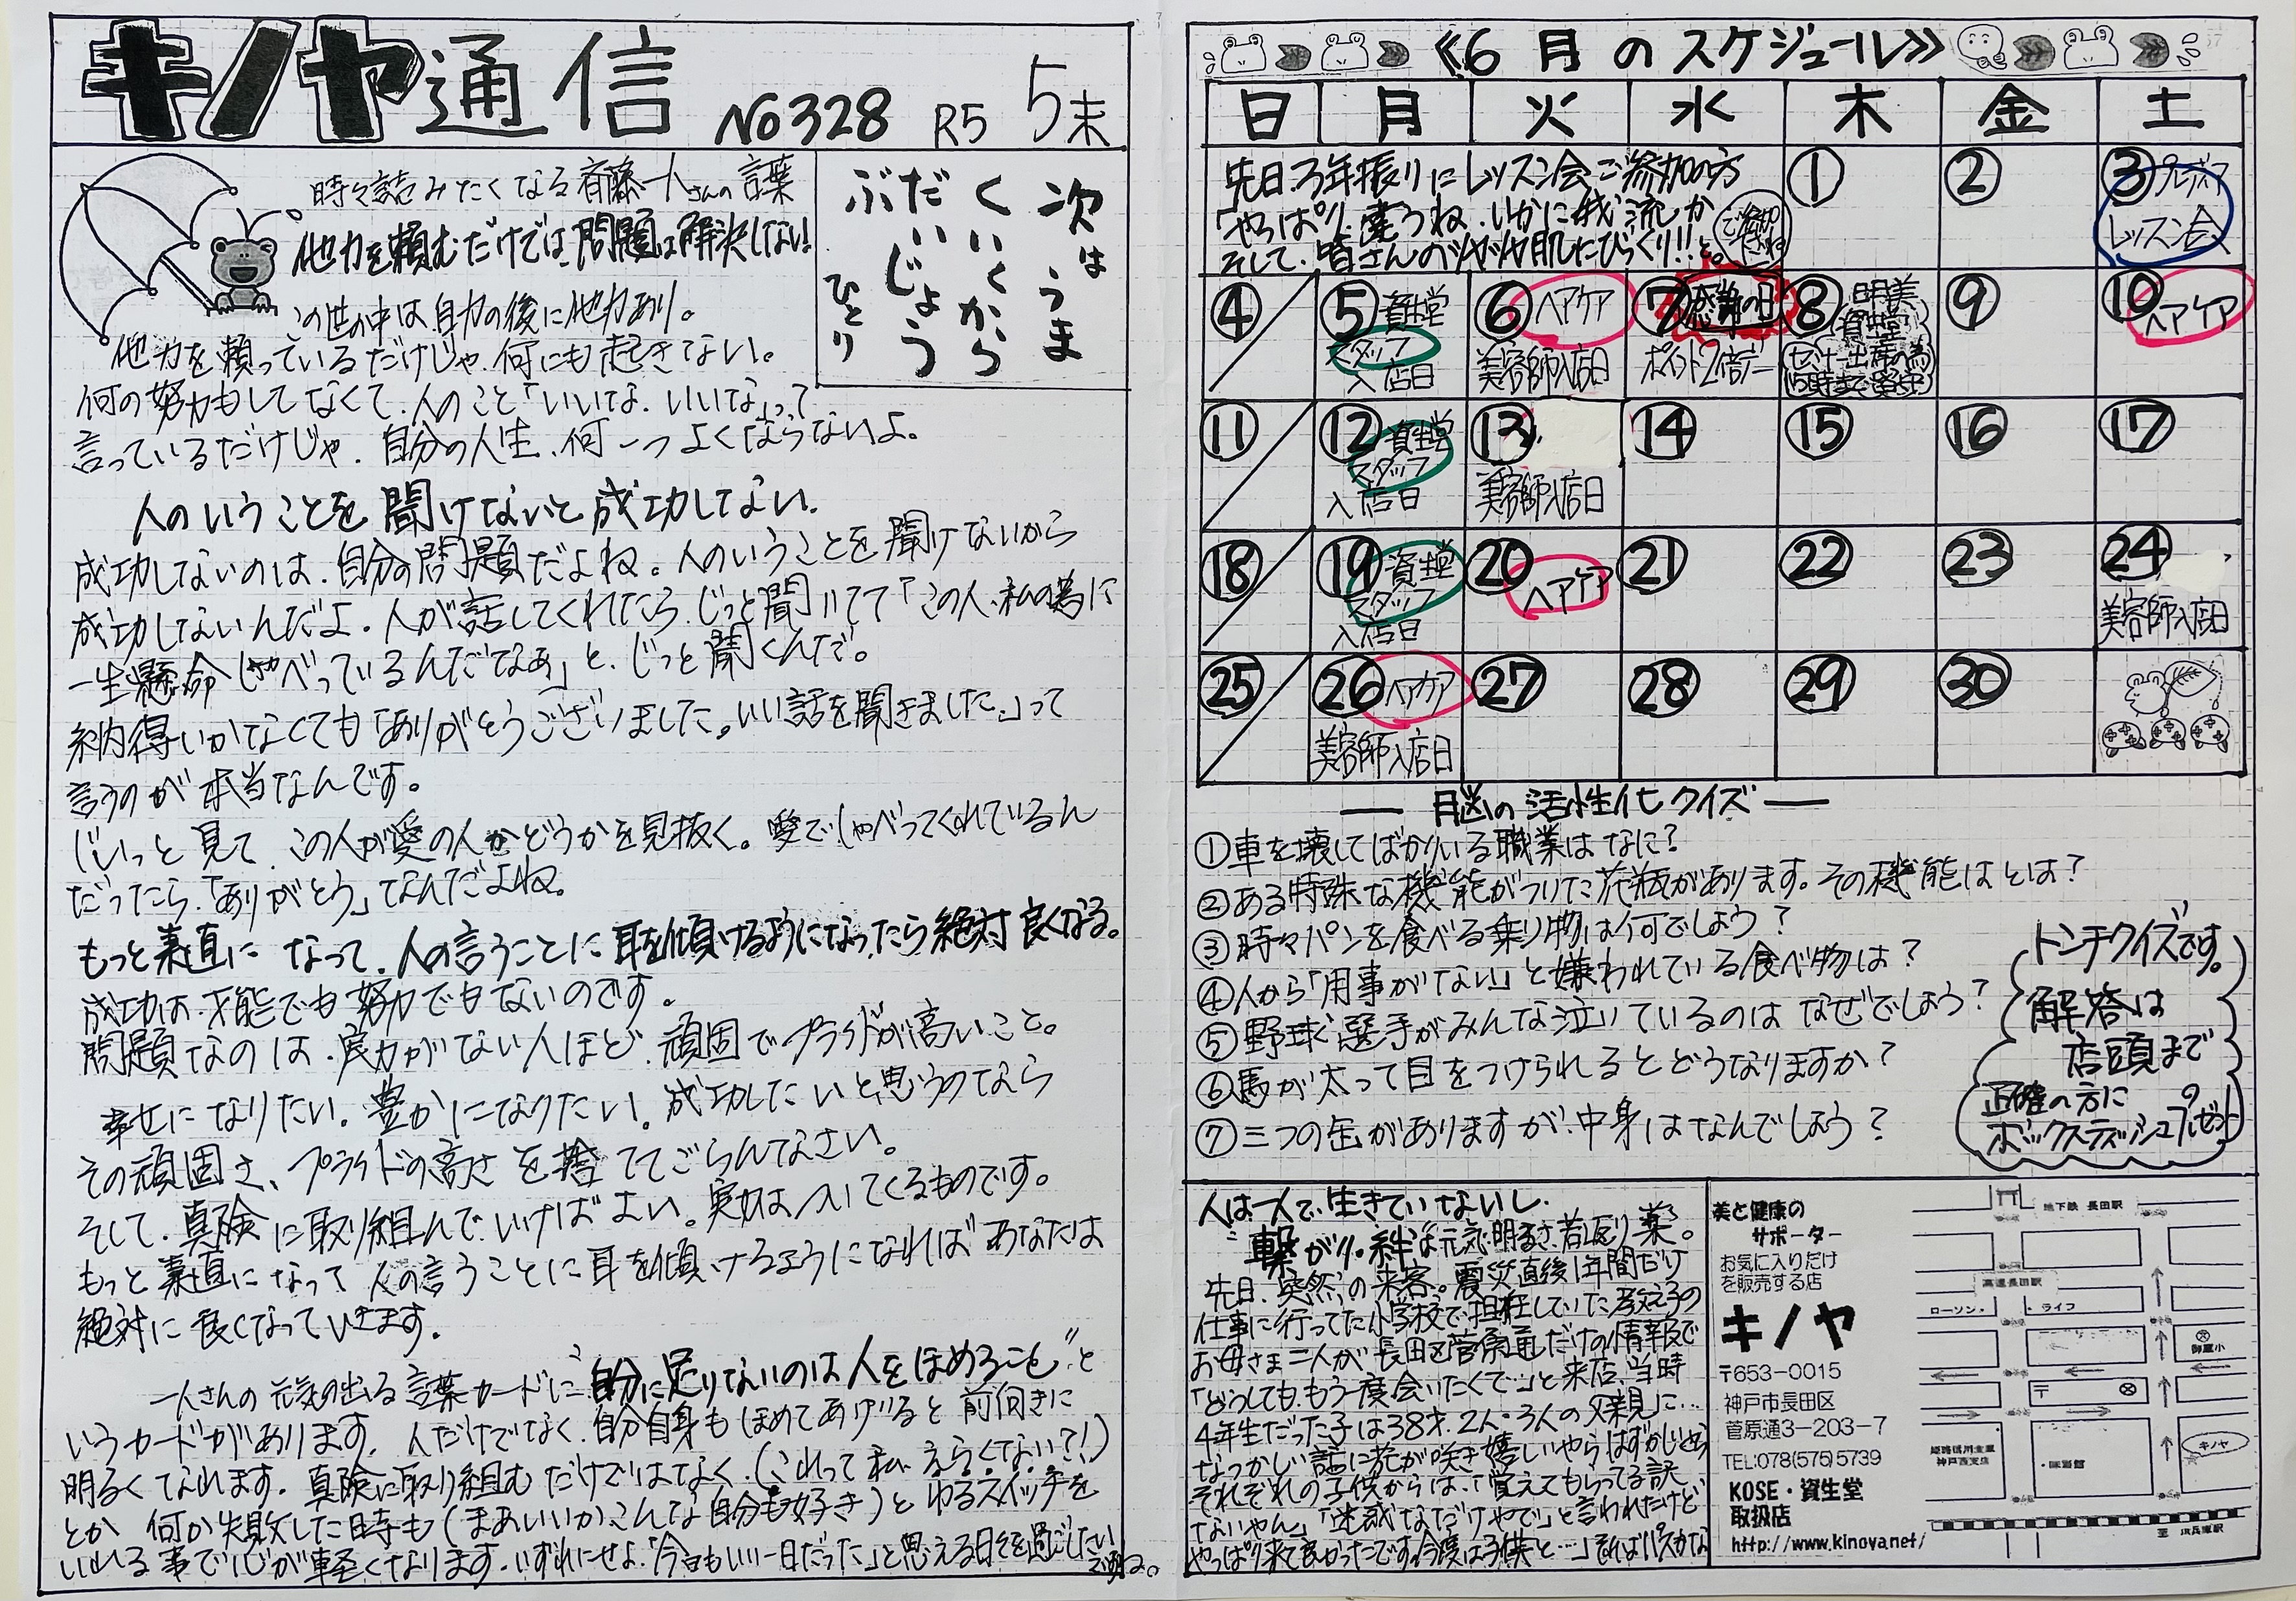 キノヤ通信 No328 R5 5末
時々読みたくなる斉藤一人さんの言葉
他力を頼むだけでは、問題は解決しない!
この世の中は、自力の後に他力あり。
他力を頼っているだけじゃ、何にも起きない。
何の努力もしてなくて、人のこと「いいな、いいな」って
言っているだけじゃ、自分の人生、何一つよくならないよ。
次はうま
くいくから
だいじょう
ぶ
ひとり
人のいうことを聞けないと成功しない。
成功しないのは、自分の問題だよね。人のいうことを聞けないから
成功しないんだよ。人が話してくれたら、じっと聞いてて「この人、私の為に
一生懸命しゃべっているんだなぁ」と、じっと聞くんだ。
納得いかなくても「ありがとうございました。いい話を聞きました。」って
言うのが本当なんです。
じいっと見て、この人が愛の人かどうかを見抜く。愛でしゃべってくれているん
だったら、「ありがとう」なんだよね。
もっと素直になって、人の言うことに耳を傾けるようになったら絶対良くなる。
成功は、才能でも努力でもないのです。
問題なのは、実力がない人ほど、頑固でプライドが高いこと。
幸せになりたい。豊かになりたい。成功したいと思うのなら
その頑固さ、プライドの高さを捨ててごらんなさい。
そして、真険に取り組んでいけばよい。実力はついてくるものです。
もっと素直になって人の言うことに耳を傾けるようになればあなたは
絶対に良くなっていきます。
一人さんの元気の出る言葉カードに"自分に足りないのは人をほめること"と
いうカードがあります。人だけでなく、自分自身もほめてあげると前向きに
明るくなれます。真険に取り組むだけではなく、(これって私、えらくない?!)
とか何か失敗した時も(まあいいか、こんな自分も好き)とゆるスイッチを
いれる事で心が軽くなります。いずれにせよ「今日もいい一日だった」と思える日々を過ごしたい
ですね。
《6月のスケジュール》
日 月 火 水 木 金 土
先日3年振りにレッスン会ご参加の方
「やっぱり、違うね、いかに我流か
そして、皆さんのツヤツヤ肌にびっくり!!」と。
ご参加下さいね
① ② ③ プレディア
レッスン会
④ ⑤ 資生堂 スタッフ 入店日
⑥ ヘアケア 美容師入店日
⑦ 感謝の日 ポイント2倍デー
⑧ 明美 資生堂 セミナー出席の為 15時まで留守
⑨ ⑩ ヘアケア
⑪ ⑫ 資生堂 スタッフ 入店日
⑬ 美容師入店日
⑭ ⑮ ⑯ ⑰
⑱ ⑲ 資生堂 スタッフ 入店日
⑳ ヘアケア
㉑ ㉒ ㉓ ㉔ 美容師入店日
㉕ ㉖ ヘアケア 美容師入店日
㉗ ㉘ ㉙ ㉚
― 脳の活性化クイズ ―
①車を壊してばかりいる職業はなに?
②ある特殊な機能がついた花瓶があります。その機能はとは?
③時々パンを食べる乗り物は何でしょう?
④人から「用事がない」と嫌われている食べ物は?
⑤野球選手がみんな泣いているのはなぜでしょう?
⑥馬が太って目をつけられるとどうなりますか?
⑦三つの缶がありますが、中身はなんでしょう?
トンチクイズです。
解答は
店頭まで
正確の方に
ボックスティッシュプレゼント
人は一人で、生きていないし、
"繋がり・絆"は元気・明るさ・若返り薬。
先日、突然の来客。震災直後1年間だけ
仕事に行ってた小学校で担任していた教え子の
お母さま二人が、長田区菅原通だけの情報で
「どうしても、もう一度会いたくて…」と来店、当時
4年生だった子は38才、2人・3人の父親に…
なつかしい話に花が咲き嬉しいやらはずかしいやら
それぞれの子供からは、「覚えてもらってる訳
ないやん」「迷惑なだけやで」と言われたけど
やっぱり来て良かったです。今度は子供と…」
美と健康の
サポーター
お気に入りだけ
を販売する店
キノヤ
〒653-0015
神戸市長田区
菅原通3-203-7
TEL:078(575)5739
KOSE・資生堂
取扱店
http://www.kinoya.net/
地下鉄 長田駅
高速長田駅
ローソン・ ・ライフ
御蔵小
〒
姫路信用金庫
神戸西支店
キノヤ
至 JR兵庫駅